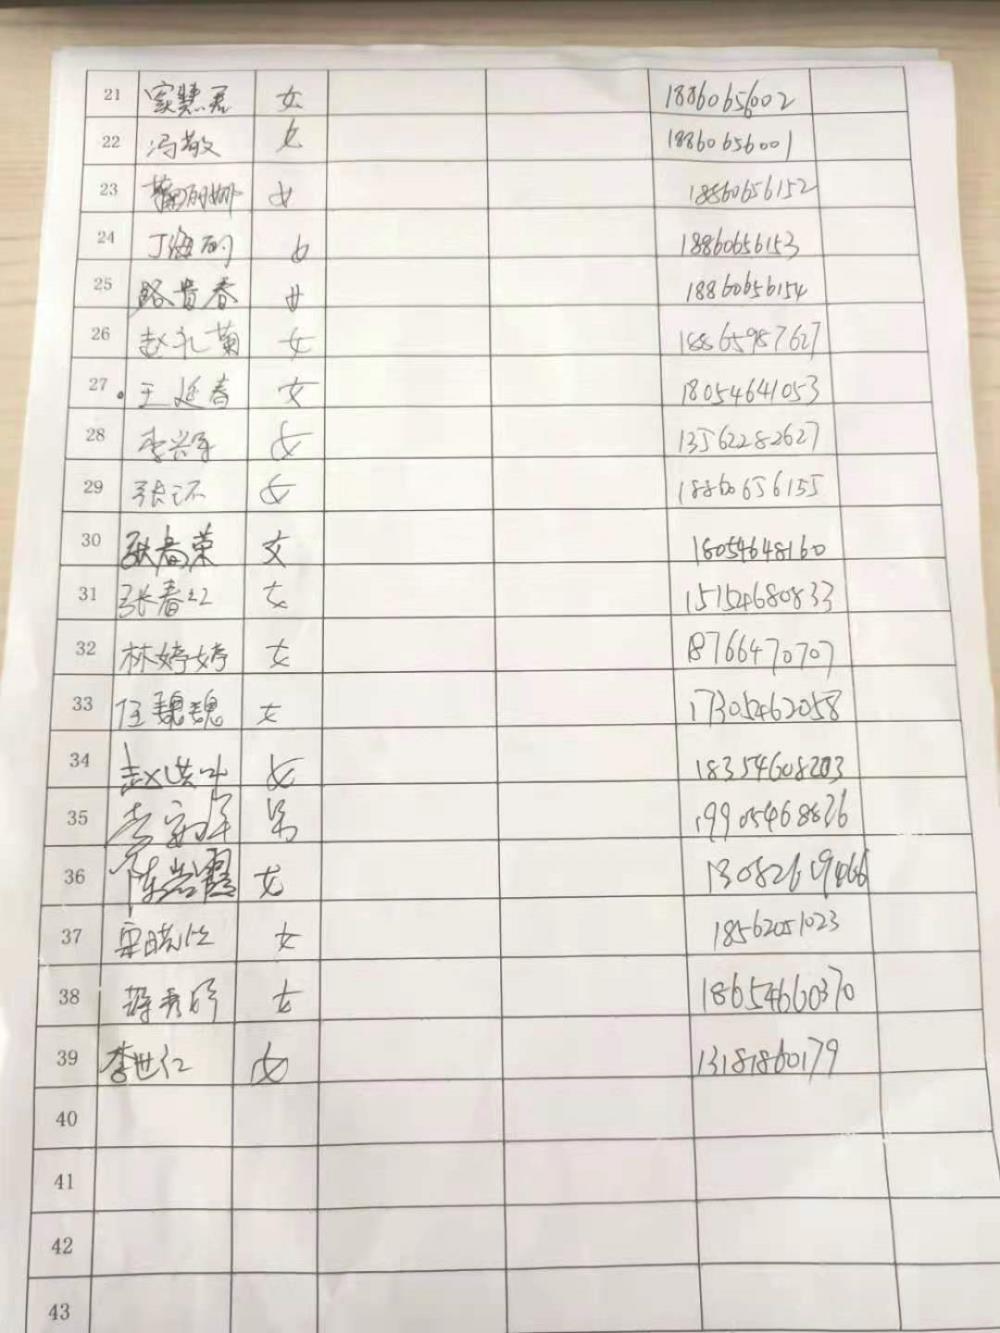 21 窦慧君 女 18860656002
22 冯敬 女 18860656001
23 丽娜 女 18860656152
24 丁海丽 女 18860656153
25 路贵春 女 18860656154
26 赵礼菊 女 18865987627
27 王延春 女 18054641053
28 李兴军 女 13562282627
29 张环 女 18860656155
30 耿春荣 女 18054648160
31 张春红 女 15152680833
32 林婷婷 女 18766470707
33 任魏魏 女 17305462058
34 赵洪叶 女 18354608203
35 李 军 男 19905468826
36 陈岩霞 女 13082619466
37 晓 女 18562051023
38 薛秀 女 18654660370
39 李世仁 女 13181860179
40
41
42
43